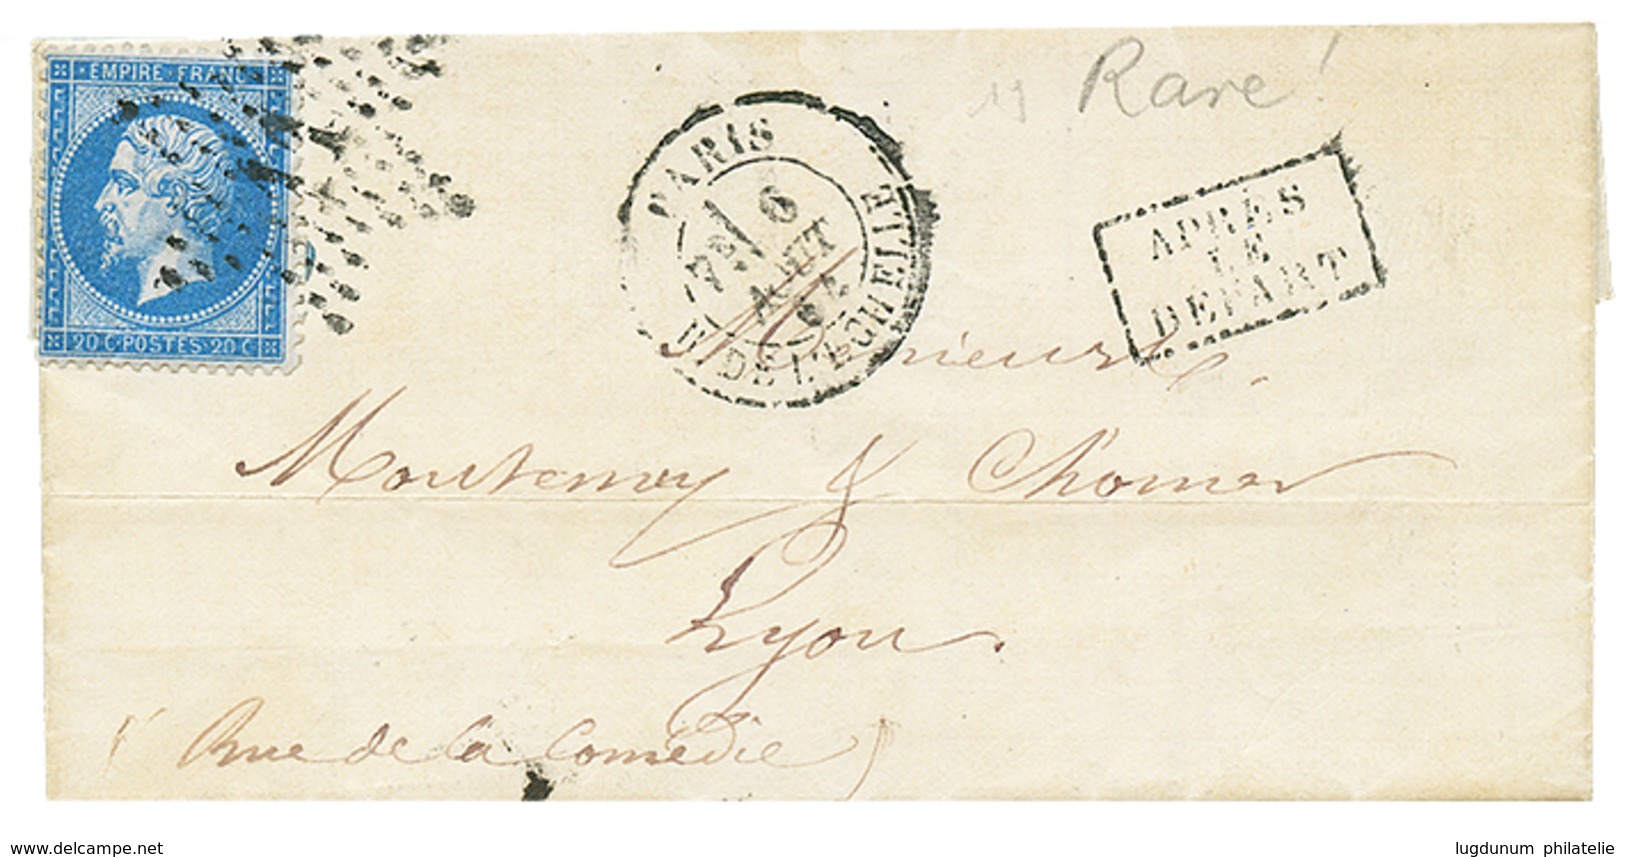 EMPIRE FRANC
20 C POSTES 20 C
Rare !
PARIS
R. DE L'ECHELLE
7E
6
AOUT
64
APRES
LE
DEPART
Messieurs
Montemey & Chomer
Lyon.
( Rue de la Comédie )
www.delcampe.net
lugdunum philatelie